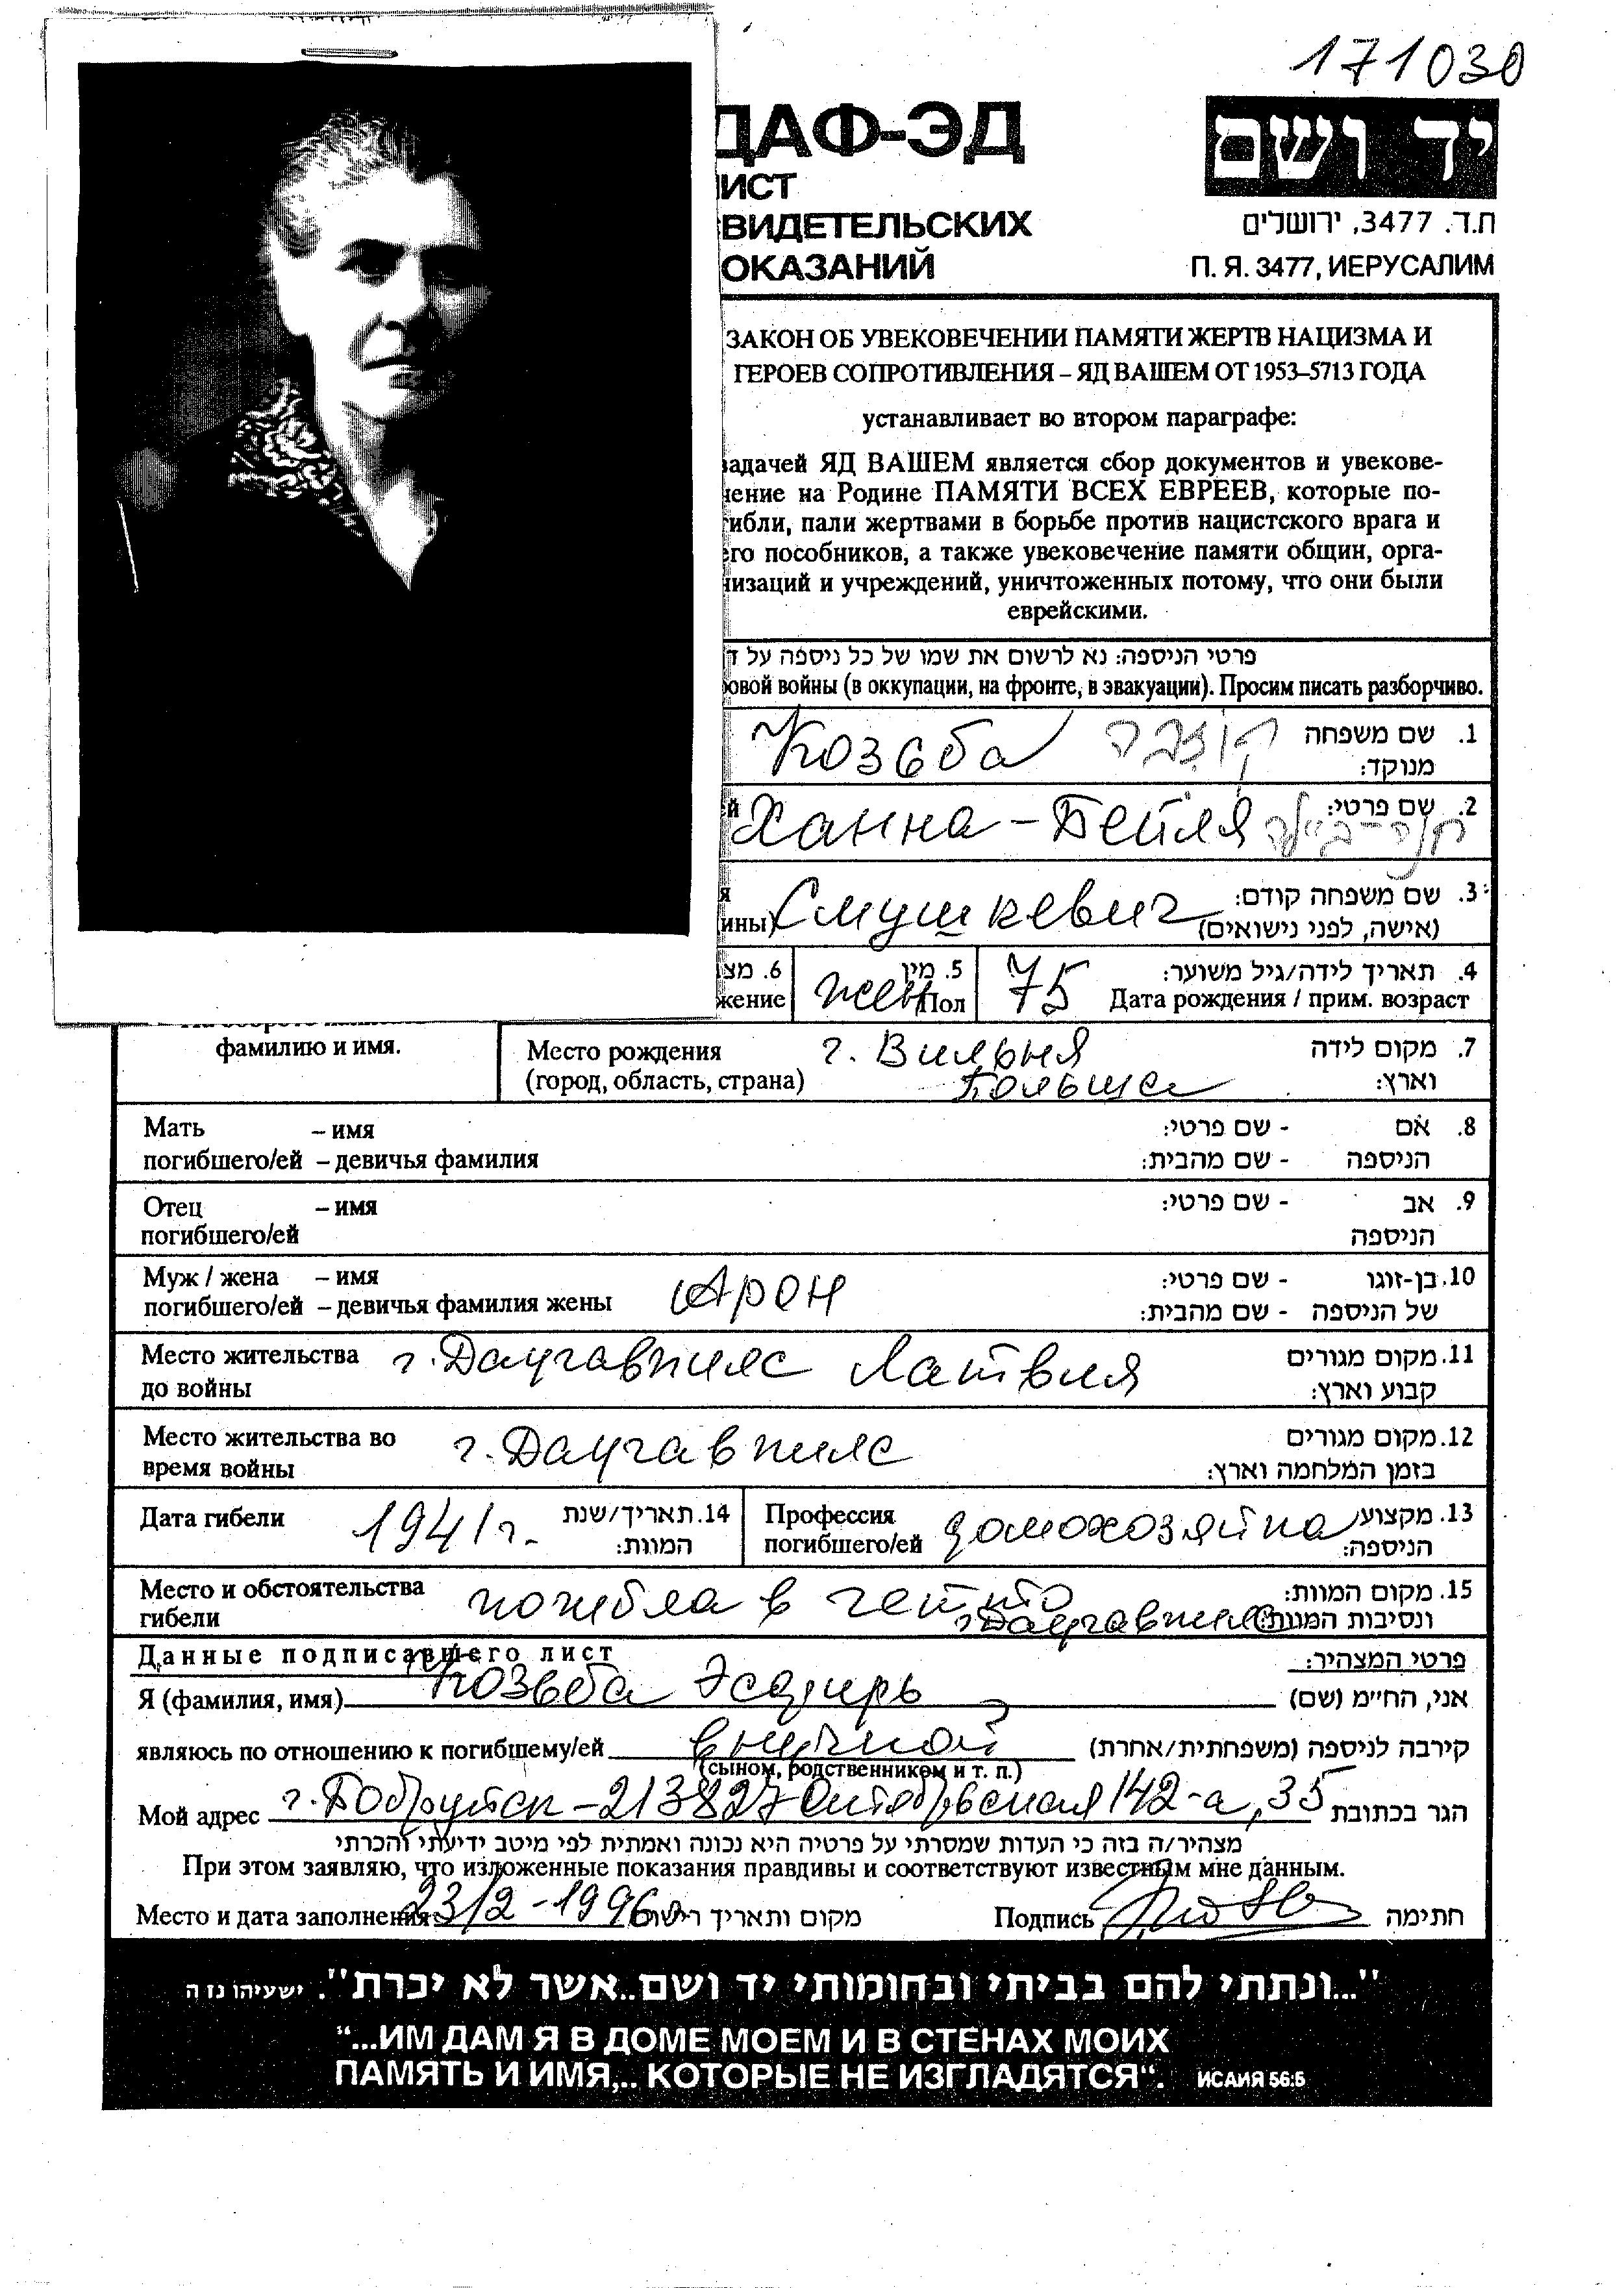 171030
ДАФ-ЭД
יד ושם
ИСТ
ВИДЕТЕЛЬСКИХ
ОКАЗАНИЙ
ת.ד. 3477, ירושלים
П. Я. 3477, ИЕРУСАЛИМ
ЗАКОН ОБ УВЕКОВЕЧЕНИИ ПАМЯТИ ЖЕРТВ НАЦИЗМА И
ГЕРОЕВ СОПРОТИВЛЕНИЯ – ЯД ВАШЕМ ОТ 1953–5713 ГОДА
устанавливает во втором параграфе:
задачей ЯД ВАШЕМ является сбор документов и увекове-
чение на Родине ПАМЯТИ ВСЕХ ЕВРЕЕВ, которые по-
гибли, пали жертвами в борьбе против нацистского врага и
его пособников, а также увековечение памяти общин, орга-
низаций и учреждений, уничтоженных потому, что они были
еврейскими.
פרטי הניספה: נא לרשום את שמו של כל ניספה על ד
овой войны (в оккупации, на фронте, в эвакуации). Просим писать разборчиво.
Козьба קוזבה 1. שם משפחה
מנוקד:
ей Ханна-Бейля חנה-ביילה 2. שם פרטי:
я Смушкевич 3. שם משפחה קודם:
ины) (אישה, לפני נישואים)
6. מצ 5. מין 75 4. תאריך לידה/גיל משוער:
жение жен Пол Дата рождения / прим. возраст
фамилию и имя.
Место рождения г. Вильня 7. מקום לידה
(город, область, страна) Польша וארץ:
Мать – имя - שם פרטי: 8. אם
погибшего/ей – девичья фамилия - שם מהבית: הניספה
Отец – имя - שם פרטי: 9. אב
погибшего/ей הניספה
Муж / жена – имя Арон - שם פרטי: 10. בן-זוגו
погибшего/ей – девичья фамилия жены - שם מהבית: של הניספה
Место жительства г. Даугавпилс Латвия 11. מקום מגורים
до войны קבוע וארץ:
Место жительства во г. Даугавпилс 12. מקום מגורים
время войны בזמן המלחמה וארץ:
Дата гибели 1941г. 14. תאריך/שנת Профессия домохозяйка 13. מקצוע
המוות: погибшего/ей הניספה:
Место и обстоятельства погибла в гетто 15. מקום המוות:
гибели г. Даугавпилс ונסיבות המוות:
Данные подписавшего лист פרטי המצהיר:
Я (фамилия, имя) Козьба Эсфирь אני, הח״מ (שם)
являюсь по отношению к погибшему/ей внучкой קירבה לניספה (משפחתית/אחרת)
(сыном, родственником и т. п.)
Мой адрес г. Бобруйск-213827 Октябрьская 142-а, 35 הגר בכתובת
מצהיר/ה בזה כי העדות שמסרתי על פרטיה היא נכונה ואמתית לפי מיטב ידיעתי והכרתי
При этом заявляю, что изложенные показания правдивы и соответствуют известным мне данным.
Место и дата заполнения 23/2-1996г מקום ותאריך רישום Подпись חתימה
"...ונתתי להם בביתי ובחומותי יד ושם..אשר לא יכרת". ישעיהו נז ה
“...ИМ ДАМ Я В ДОМЕ МОЕМ И В СТЕНАХ МОИХ
ПАМЯТЬ И ИМЯ,.. КОТОРЫЕ НЕ ИЗГЛАДЯТСЯ“. ИСАИЯ 56:5